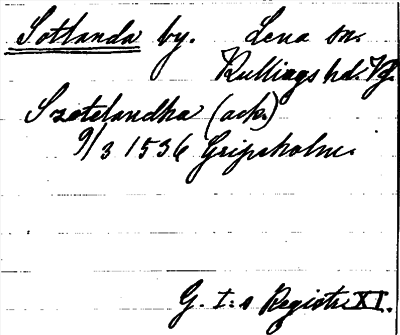 Sotlanda by. Lena sn.
Kullings hd. Vg.
Szotelandha (ack.)
9/3 1536 Gripsholm.
G. I:s Registr. XI.